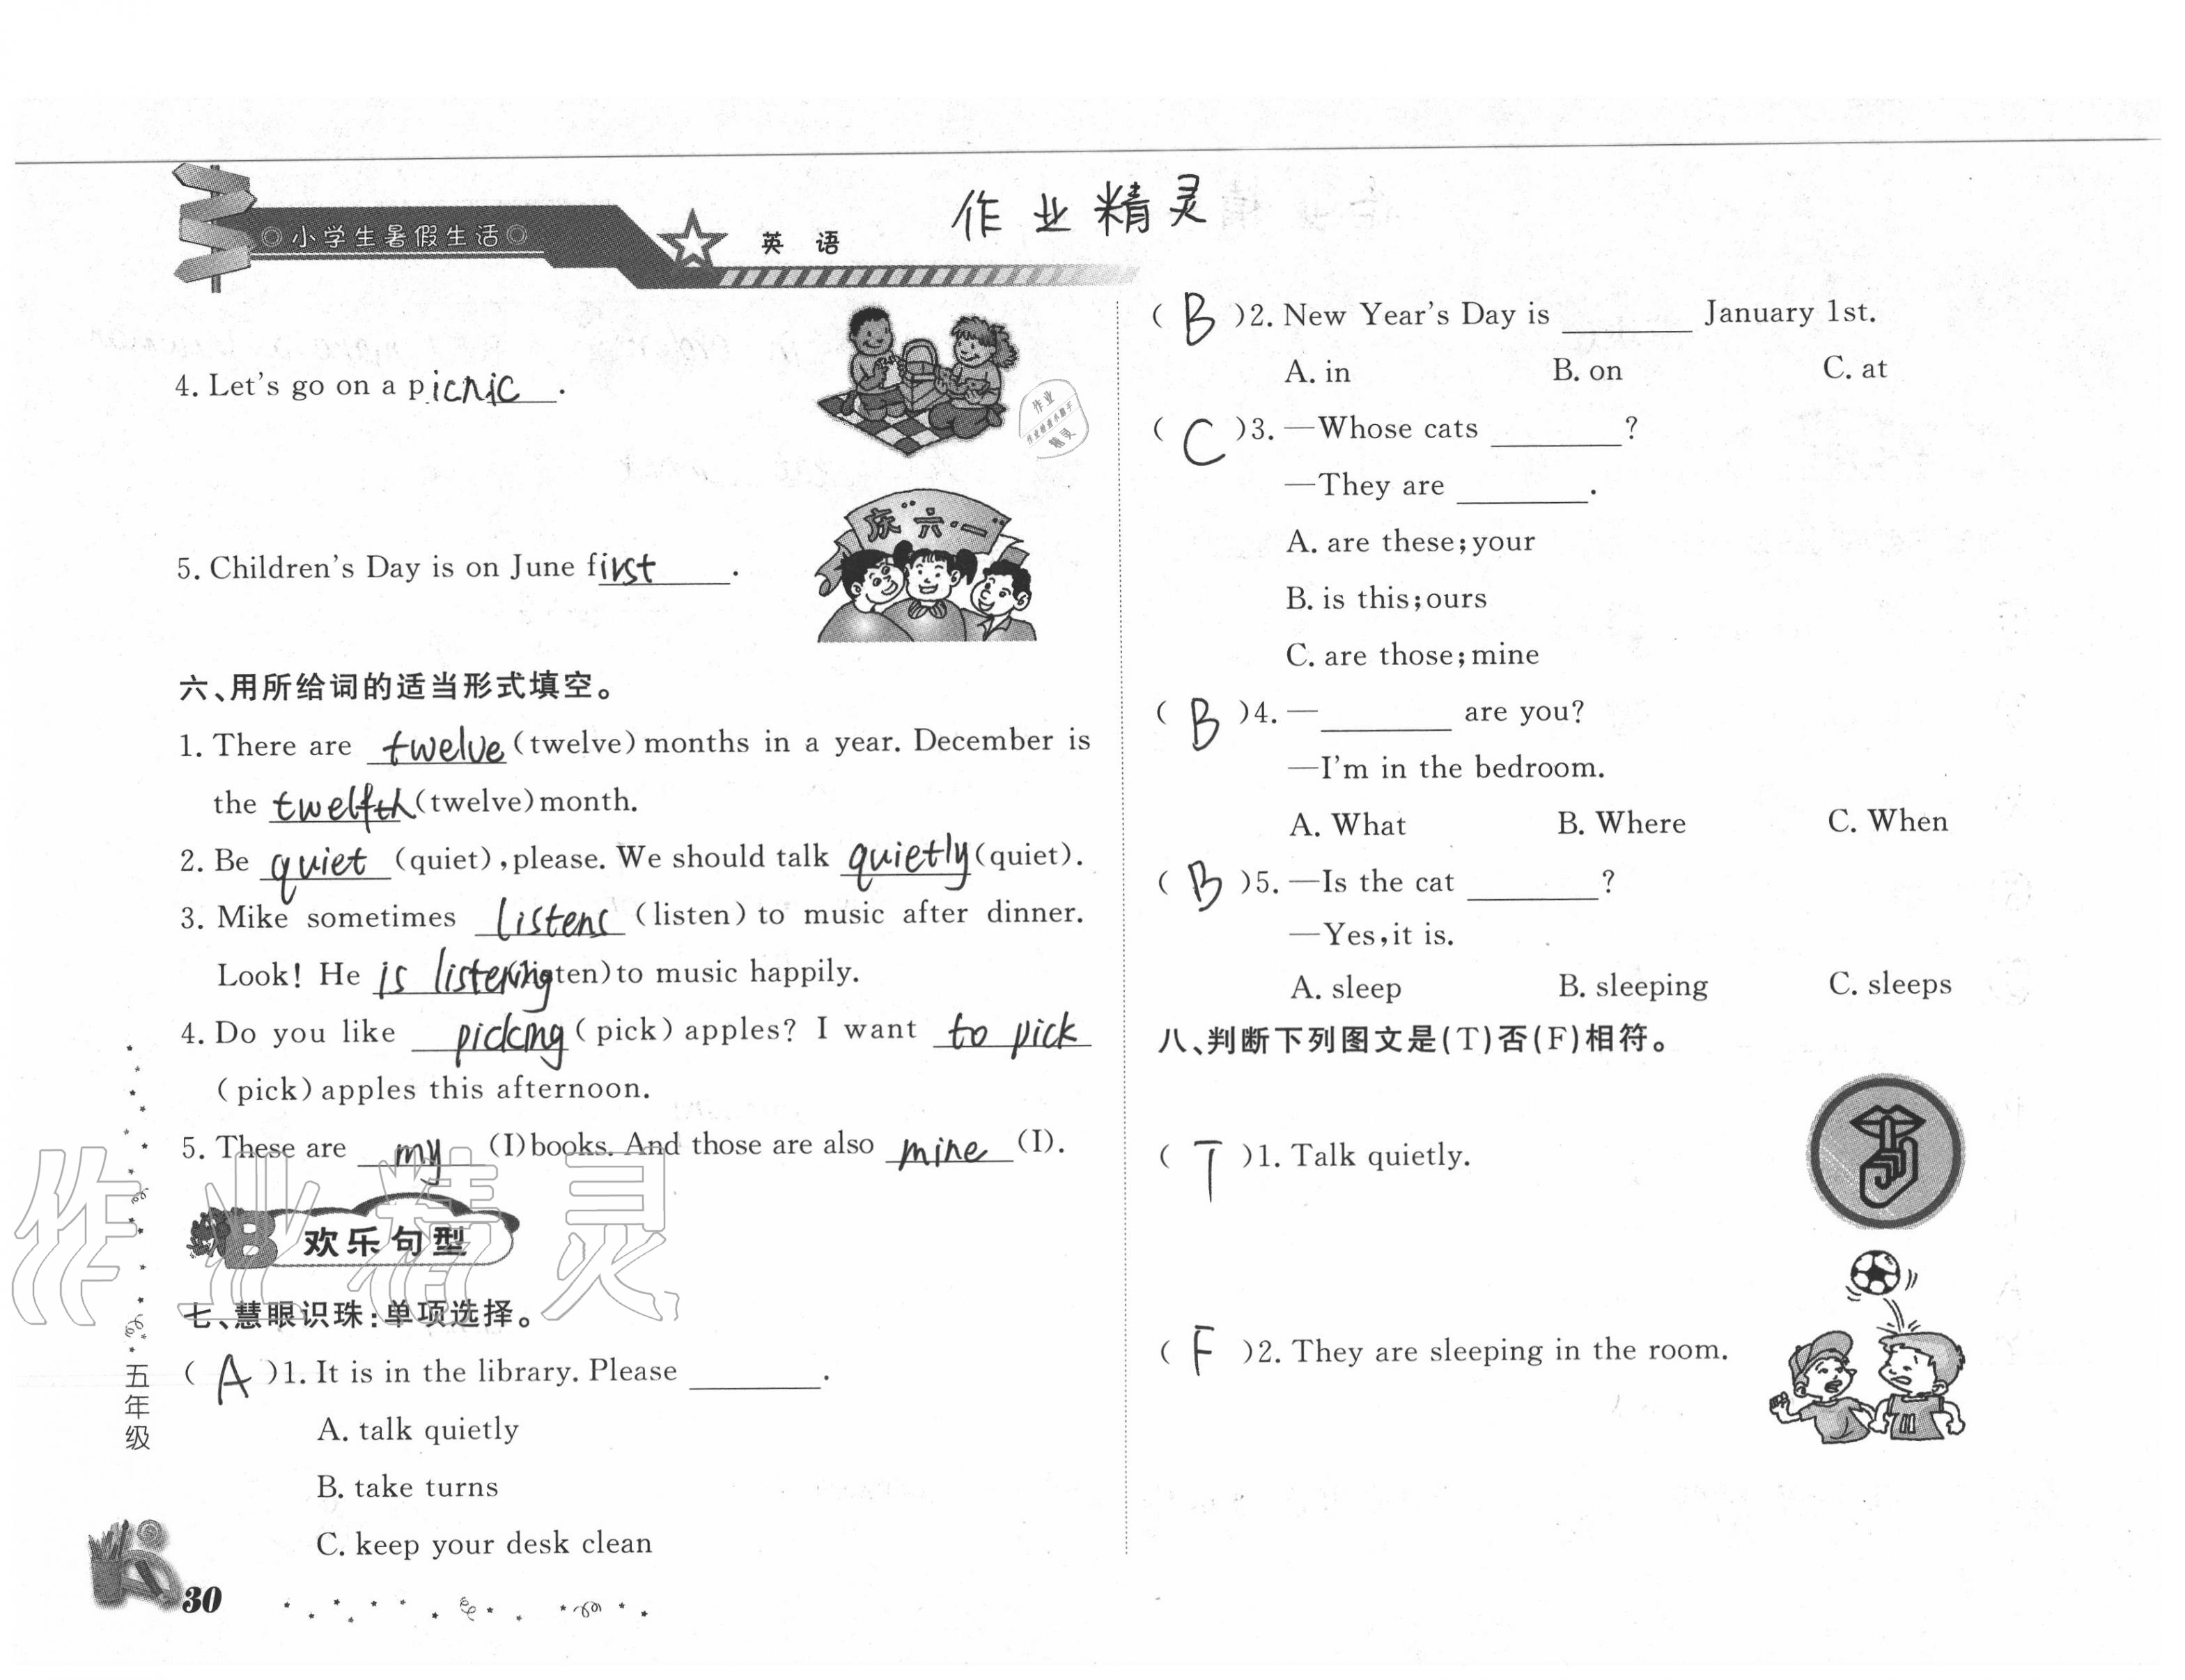 小学生暑假生活
英语
作业精灵
4. Let's go on a picnic.
庆"六·一"
5. Children's Day is on June first.
六、用所给词的适当形式填空。
1. There are twelve (twelve) months in a year. December is
the twelfth (twelve) month.
2. Be quiet (quiet), please. We should talk quietly (quiet).
3. Mike sometimes listens (listen) to music after dinner.
Look! He is listening (listen) to music happily.
4. Do you like picking (pick) apples? I want to pick
(pick) apples this afternoon.
5. These are my (I) books. And those are also mine (I).
B 欢乐句型
七、慧眼识珠:单项选择。
( A )1. It is in the library. Please ________.
A. talk quietly
B. take turns
C. keep your desk clean
( B )2. New Year's Day is ________ January 1st.
A. in B. on C. at
( C )3. —Whose cats ________?
—They are ________.
A. are these; your
B. is this; ours
C. are those; mine
( B )4. —________ are you?
—I'm in the bedroom.
A. What B. Where C. When
( B )5. —Is the cat ________?
—Yes, it is.
A. sleep B. sleeping C. sleeps
八、判断下列图文是(T)否(F)相符。
( T )1. Talk quietly.
( F )2. They are sleeping in the room.
五年级
30
作业精灵